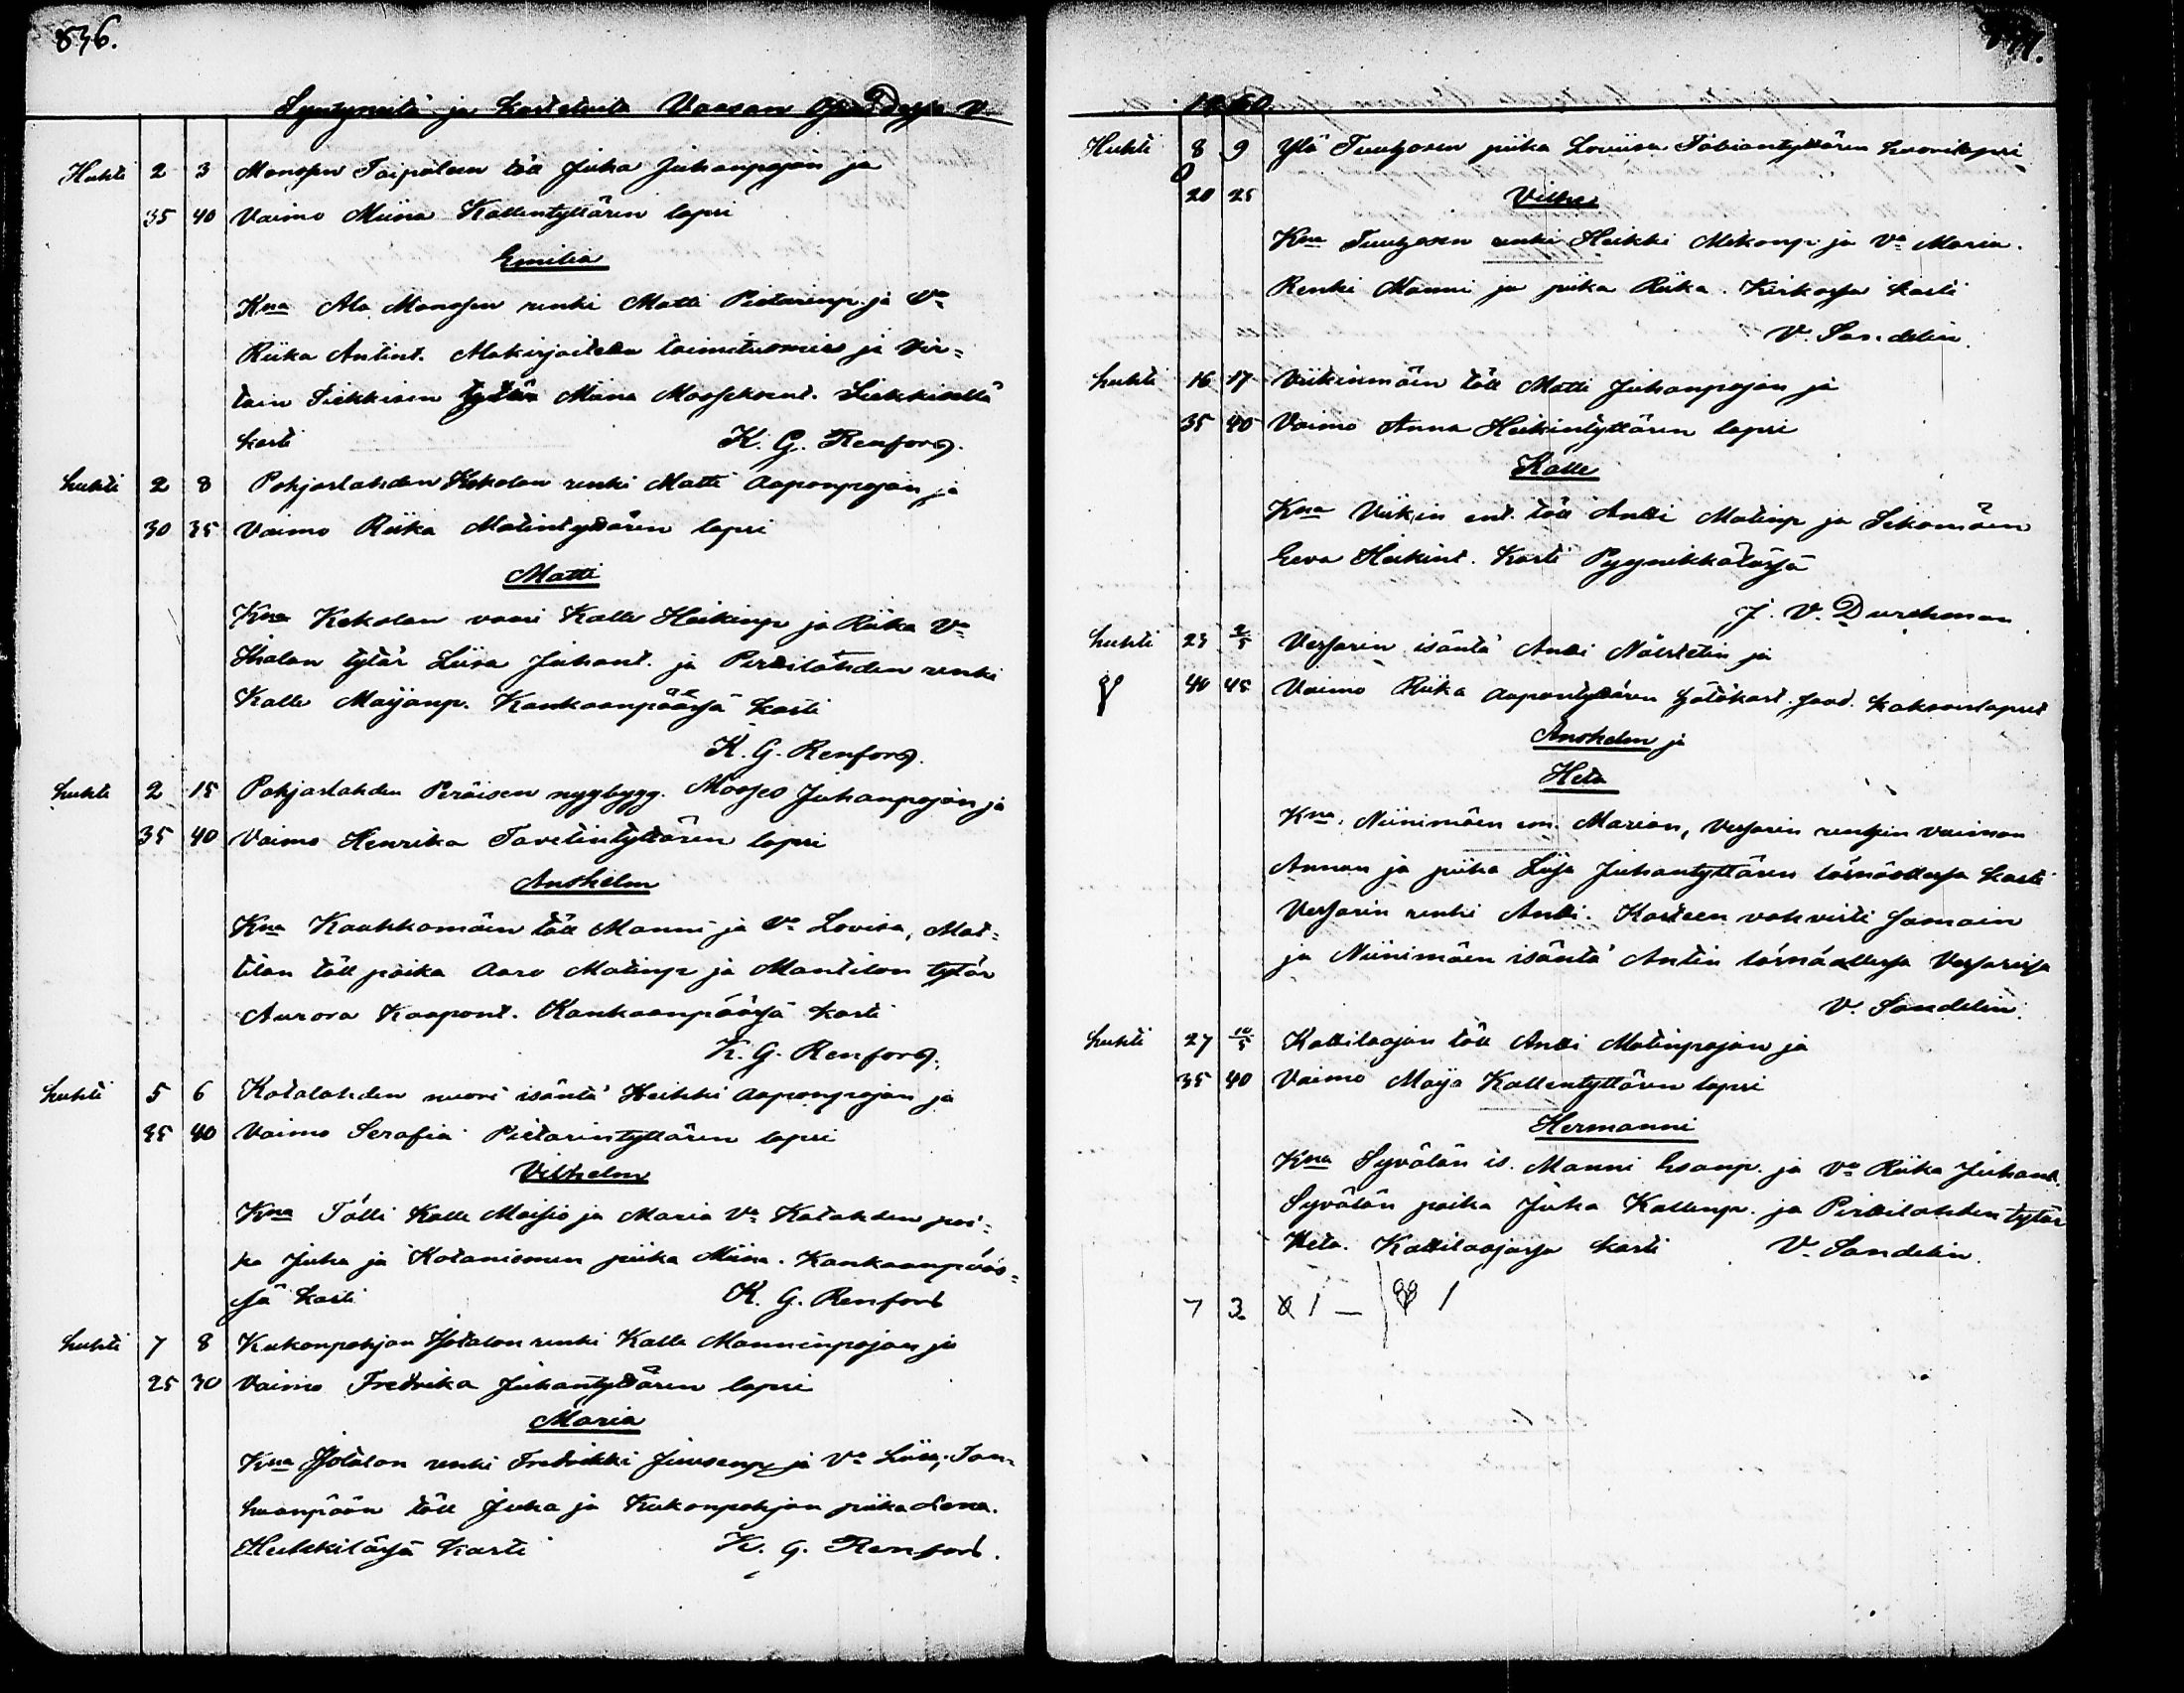 836.
Syntyneitä ja Kastetuita Vaasan
Huhti 2 3 Monosen Taipaleen töll Juha Juhanpojan ja
35 40 Vaimo Miina Kallentyttären lapsi
Emilia
Kna Ala Monosen renki Matti Pietarinp. ja Va
Riika Antint. Alakirjoitelan toimitusmies ja Vir=
tain Siekkisen tytär Miina Mooseksent. Siekkisellä
kasti K. G. Renfors.
huhti 2 8 Pohjaslahden Kekolan renki Matti Aaponpojan ja
30 35 Vaimo Riika Matintyttären lapsi
Matti
Kna Kekolan vaari Kalle Heikinp ja Riika Va
tytär Liisa Juhant. ja Pirttilahden renki
Kalle Maijanp. Kankaanpäässä kasti
K. G. Renfors.
huhti 2 15 Pohjaslahden Peräisen nygbygg. Mooses Juhanpojan ja
35 40 Vaimo Henrika Tavetintyttären lapsi
Anshelm
Kna Kaahkomäen töll Manni ja Va Lovisa, Mat=
tilan töll poika Aaro Matinp ja Manttilan tytär
Aurora Kaapont. Kankaanpäässä kasti
K. G. Renfors.
huhti 5 6 Kotalahden nuori isäntä Heikki Aaponpojan ja
35 40 Vaimo Serafia Pietarintyttären lapsi
Vilhelm
Kna Tölli Kalle Maisio ja Maria Va Kotalahden poi=
ka Juha ja Kotaniemen piika Miina. Kankaanpääs=
sä kasti K. G. Renfors
huhti 7 8 Kukonpohjan Isotalon renki Kalle Manninpojan ja
25 30 Vaimo Fredrika Juhantyttären lapsi
Maria
Kna Isotalon renki Fredrikki Juusenp ja Va Liisa, Tan=
huanpään töll Juha ja Kukonpohjan piika Lena.
Heikkilässä kasti K. G. Renfors.
Huhti 8 9 Ylä Tuuhosen piika Loviisa Tobiantyttären huorilapsi
20 25 Vilho
Kna Tuuhosen renki Heikki Mikonp ja Va Maria.
Renki Manni ja piika Riika. Kirkossa kasti
V. Sandelin.
huhti 16 17 Viikinmäen töll Matti Juhanpojan ja
35 40 Vaimo Anna Heikintyttären lapsi
Kalle
Kna Viikin ent. töll Antti Matinp ja Sikomäen
Eeva Heikint. Kasti Pyynikkälässä
J. V. Durchman
huhti 23 2/5 Vessarin isäntä Antti ja
40 45 Vaimo Riika Aapontyttären hätäkast. saad. kaksoislapset
Anshelm ja
Heta
Kna. Niinimäen em. Marian, Vessarin rengin vaimon
Annan ja piika Liisa Juhantyttären läsnäollessa kasti
Vessarin renki Antti. Kasteen vahvisti samain
ja Niinimäen isäntä Antin läsnäollessa Vessarissa
V. Sandelin.
huhti 27 10/5 Kattilaojan töll Antti Matinpojan ja
35 40 Vaimo Maija Kallentyttären lapsi
Hermanni
Kna Syvälän is. Manni Esanp. ja Va Riika Juhant.
Syvälän poika Juha Kallenp. ja Pirttilahden tytär
Heta. Kattilaojassa kasti V. Sandelin.
7 3